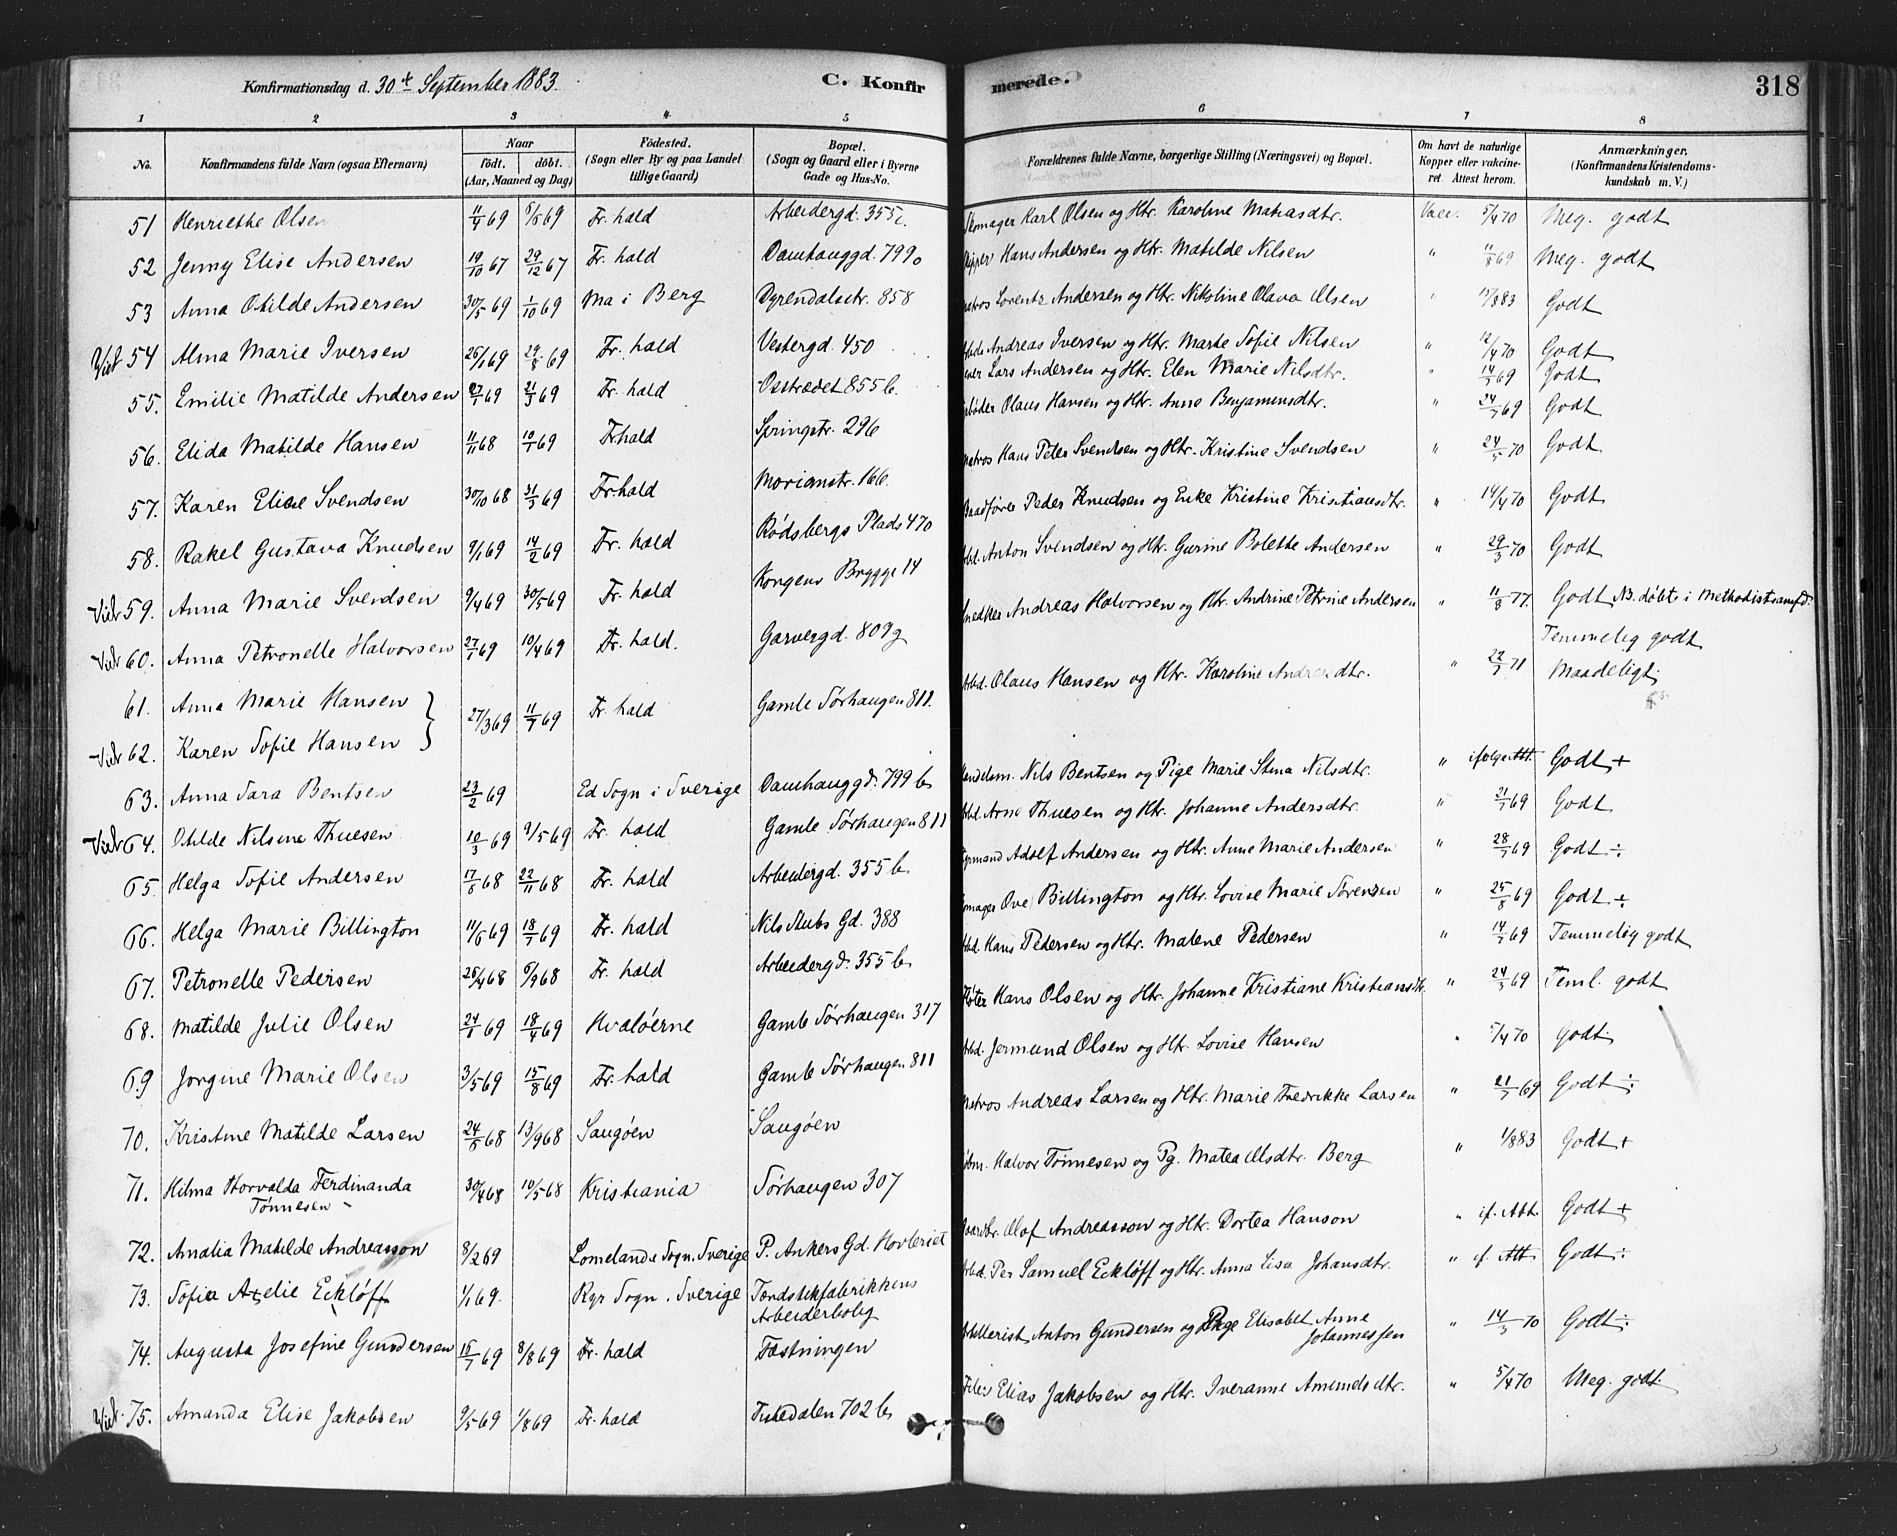 Konfirmationsdag d. 30te September 1883. C. Konfirmerede. 318
1 2 3 4 5 6 7 8
No. Konfirmandens fulde Navn (ogsaa Efternavn) Naar født. døbt. (Aar, Maaned og Dag) Födested. (Sogn eller By og paa Landet tillige Gaard) Bopæl. (Sogn og Gaard eller i Byerne Gade og Hus-No. Forældrenes fulde Navne, borgerlige Stilling (Næringsvei) og Bopæl. Om havt de naturlige Kopper eller vakcineret. Attest herom. Anmærkninger, (Konfirmandens Kristendomskundskab m. V.)
51 Henriette Olsen 11/4 69 6/5 69 Fr.hald Arbeidergd. 355c. Skomager Karl Olsen og Htr. Karoline Matiasdtr. Vacc. 5/4 70 Meg. godt
52 Jenny Elise Andersen 19/10 67 29/12 67 Fr.hald Damhauggd. 799o Skipper Hans Andersen og Htr. Matilde Nilsen " 11/8 69 Meg. godt
53 Anna Otilde Andersen 30/5 69 1/10 69 Ma i Berg Dyrendalsstr. 858 Matros Lorents Andersen og Htr. Nikoline Olava Olsen " 15/8 83 Godt
Viet 54 Alma Marie Iversen 26/1 69 29/8 69 Fr.hald Vestergd. 450 Andreas Iversen og Htr. Marte Sofie Nilsen " 12/4 70 Godt
55. Emilie Matilde Andersen 27/1 69 21/3 69 Fr.hald Osstrædet 855 b. Lars Andersen og Htr. Elen Marie Nilsdtr. " 14/7 69 Godt
56. Elida Matilde Hansen 11/11 68 10/1 69 Fr.hald Springstr. 296 Olaus Hansen og Htr. Anne Benjaminsdtr. " 24/7 69 Godt
57. Karen Elise Svendsen 30/10 68 31/3 69 Fr.hald Morianstr. 166. Matros Hans Peter Svendsen og Htr. Kristine Svendsen " 24/5 70 Godt
58. Rakel Gustava Knudsen 9/1 69 14/2 69 Fr.hald Rødsbergs Plads 470 Baadfører Peder Knudsen og Enke Kristine Kristiansdtr. " 14/4 70 Godt
Viet 59. Anna Marie Svendsen 9/4 69 30/5 69 Fr.hald Kongens Brygge 14 Arbd. Anton Svendsen og Htr. Gurine Bolette Andersen " 29/3 70 Godt
Viet 60. Anna Petronelle Halvorsen 27/1 69 10/4 69 Fr.hald. Garvergd. 809g Snedker Andreas Halvorsen og Htr. Andrine Petrine Andersen " 11/8 77. Godt NB. døbt i Methodistsamfd.
61. Anna Marie Hansen } 27/3 69 11/7 69 Fr.hald Gamle Sørhaugen 811. Arbd. Olaus Hansen og Htr. Karoline Andreasdtr. " 22/7 71 Temmelig godt
Viet 62. Karen Sofie Hansen } Maadeligt
63. Anna Sara Bentsen 23/2 69 Ed Sogn i Sverige Damhauggd. 799 b Handelsm. Nils Bentsen og Pige Marie Stina Nilsdtr. " ifølge Att. Godt +
Viet 64. Otilde Nilsine Thuesen 10/3 69 9/5 69 Fr.hald Gamle Sørhaugen 811 Arbd. Arne Thuesen og Htr. Johanne Andersdtr. " 21/7 69 Godt
65. Helga Sofie Andersen 17/6 68 22/11 68 Fr.hald Arbeidergd. 355 b Styrmand Adolf Andersen og Htr. Anne Marie Andersen " 28/7 69 Godt ÷
66. Helga Marie Billington 11/6 69 18/7 69 Fr.hald Nils Stubs Gd. 388 Skomager Ove Billington og Htr. Lovise Marie Sørensen " 25/8 69 Godt ÷
67. Petronelle Pedersen 26/4 68 6/9 68 Fr.hald Arbeidergd. 355 b Arbd. Hans Pedersen og Htr. Malene Pedersen " 14/7 69 Temmelig godt
68. Matilde Julie Olsen 24/1 69 18/4 69 Hvaløerne Gamle Sørhaugen 317 Hans Olsen og Htr. Johanne Kristiane Kristiansdtr. " 24/3 69 Teml. godt
69 Jorgine Marie Olsen 3/5 69 15/8 69 Fr.hald Gamle Sørhaugen 811 Arbd. Jermund Olsen og Htr. Lovise Hansen " 5/4 70 Godt
70. Kristine Matilde Larsen 24/8 68 13/9 68 Saugøen Saugøen Matros Andreas Larsen og Htr. Marie Fredrikke Larsen " 21/7 69 Godt ÷
71. Hilma Thorvalda Ferdinanda Tønnesen 30/4 68 10/5 68 Kristiania Sørhaugen 307 Halvor Tønnesen og Pg. Matea Olsdtr. Berg " 1/8 83 Godt +
72. Amalia Matilde Andreasson 8/2 69 Lomelanda Sogn. Sverige P. Ankers Gd. Hovleriet Olof Andreasson og Htr. Dortea Hanson " if. Att. Godt +
73. Sofia Axelie Ecklöff 1/1 69. Ryr Sogn. Sverige Tændstikfabrikkens Arbeiderbolig Arbd. Per Samuel Ecklöff og Htr. Anna Lisa Johansdtr. " if. Att Godt ÷
74. Augusta Josefine Gundersen 15/7 69 8/8 69 Fr.hald Fæstningen Artillerist Anton Gundersen og Pige Elisabet Anne Johannessen " 14/3 70 Godt ÷
Viet 75. Amanda Elise Jakobsen 9/5 69 1/8 69 Fr.hald Tistedalen 702 b Elias Jakobsen og Htr. Iveranne Amundsdtr. " 5/4 70 Meg. godt